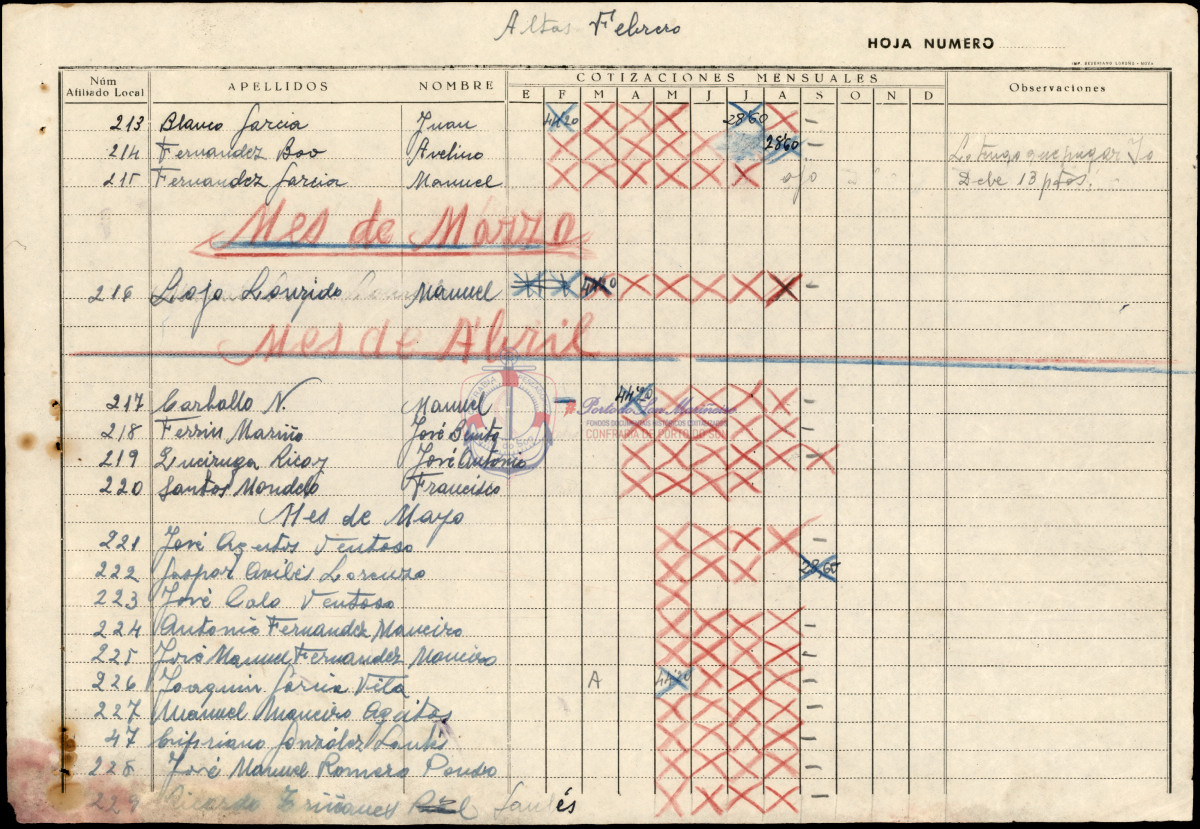 Altas Febrero
HOJA NUMERO
Núm Afiliado Local APELLIDOS NOMBRE COTIZACIONES MENSUALES Observaciones
E F M A M J J A S O N D
213 Blanco Garcia Juan 44'20 28'60 -
214 Fernandez Boo Avelino 28'60 -
215 Fernandez Garcia Manuel ojo Debe 13 ptas.
Mes de Marzo
216 Lojo Lóuzido Manuel 44'20 -
Mes de Abril
217 Carballo N. Manuel - 44'20 -
218 Ferrin Mariño José Benito -
219 Ricoy José Antonio
220 Santos Mondelo Francisco
PORTO DO SON
Porto do Son Mariñeiro
FONDOS DOCUMENTAIS HISTÓRICOS DIXITALIZADOS
CONFRARÍA DE PORTO DO SON
Mes de Mayo
221 José Ageitos Ventoso -
222 Gaspar Avilés Lorenzo 28'60
223 José Calo Ventoso
224 Antonio Fernandez Maneiro -
225 José Manuel Fernandez Maneiro -
226 Joaquin Garcia Vila A 44'20 -
227 Manuel Maneiro Ageitos -
47 Cipriano González -
228 José Manuel Romero -
229 Ricardo Triñanes Santés -